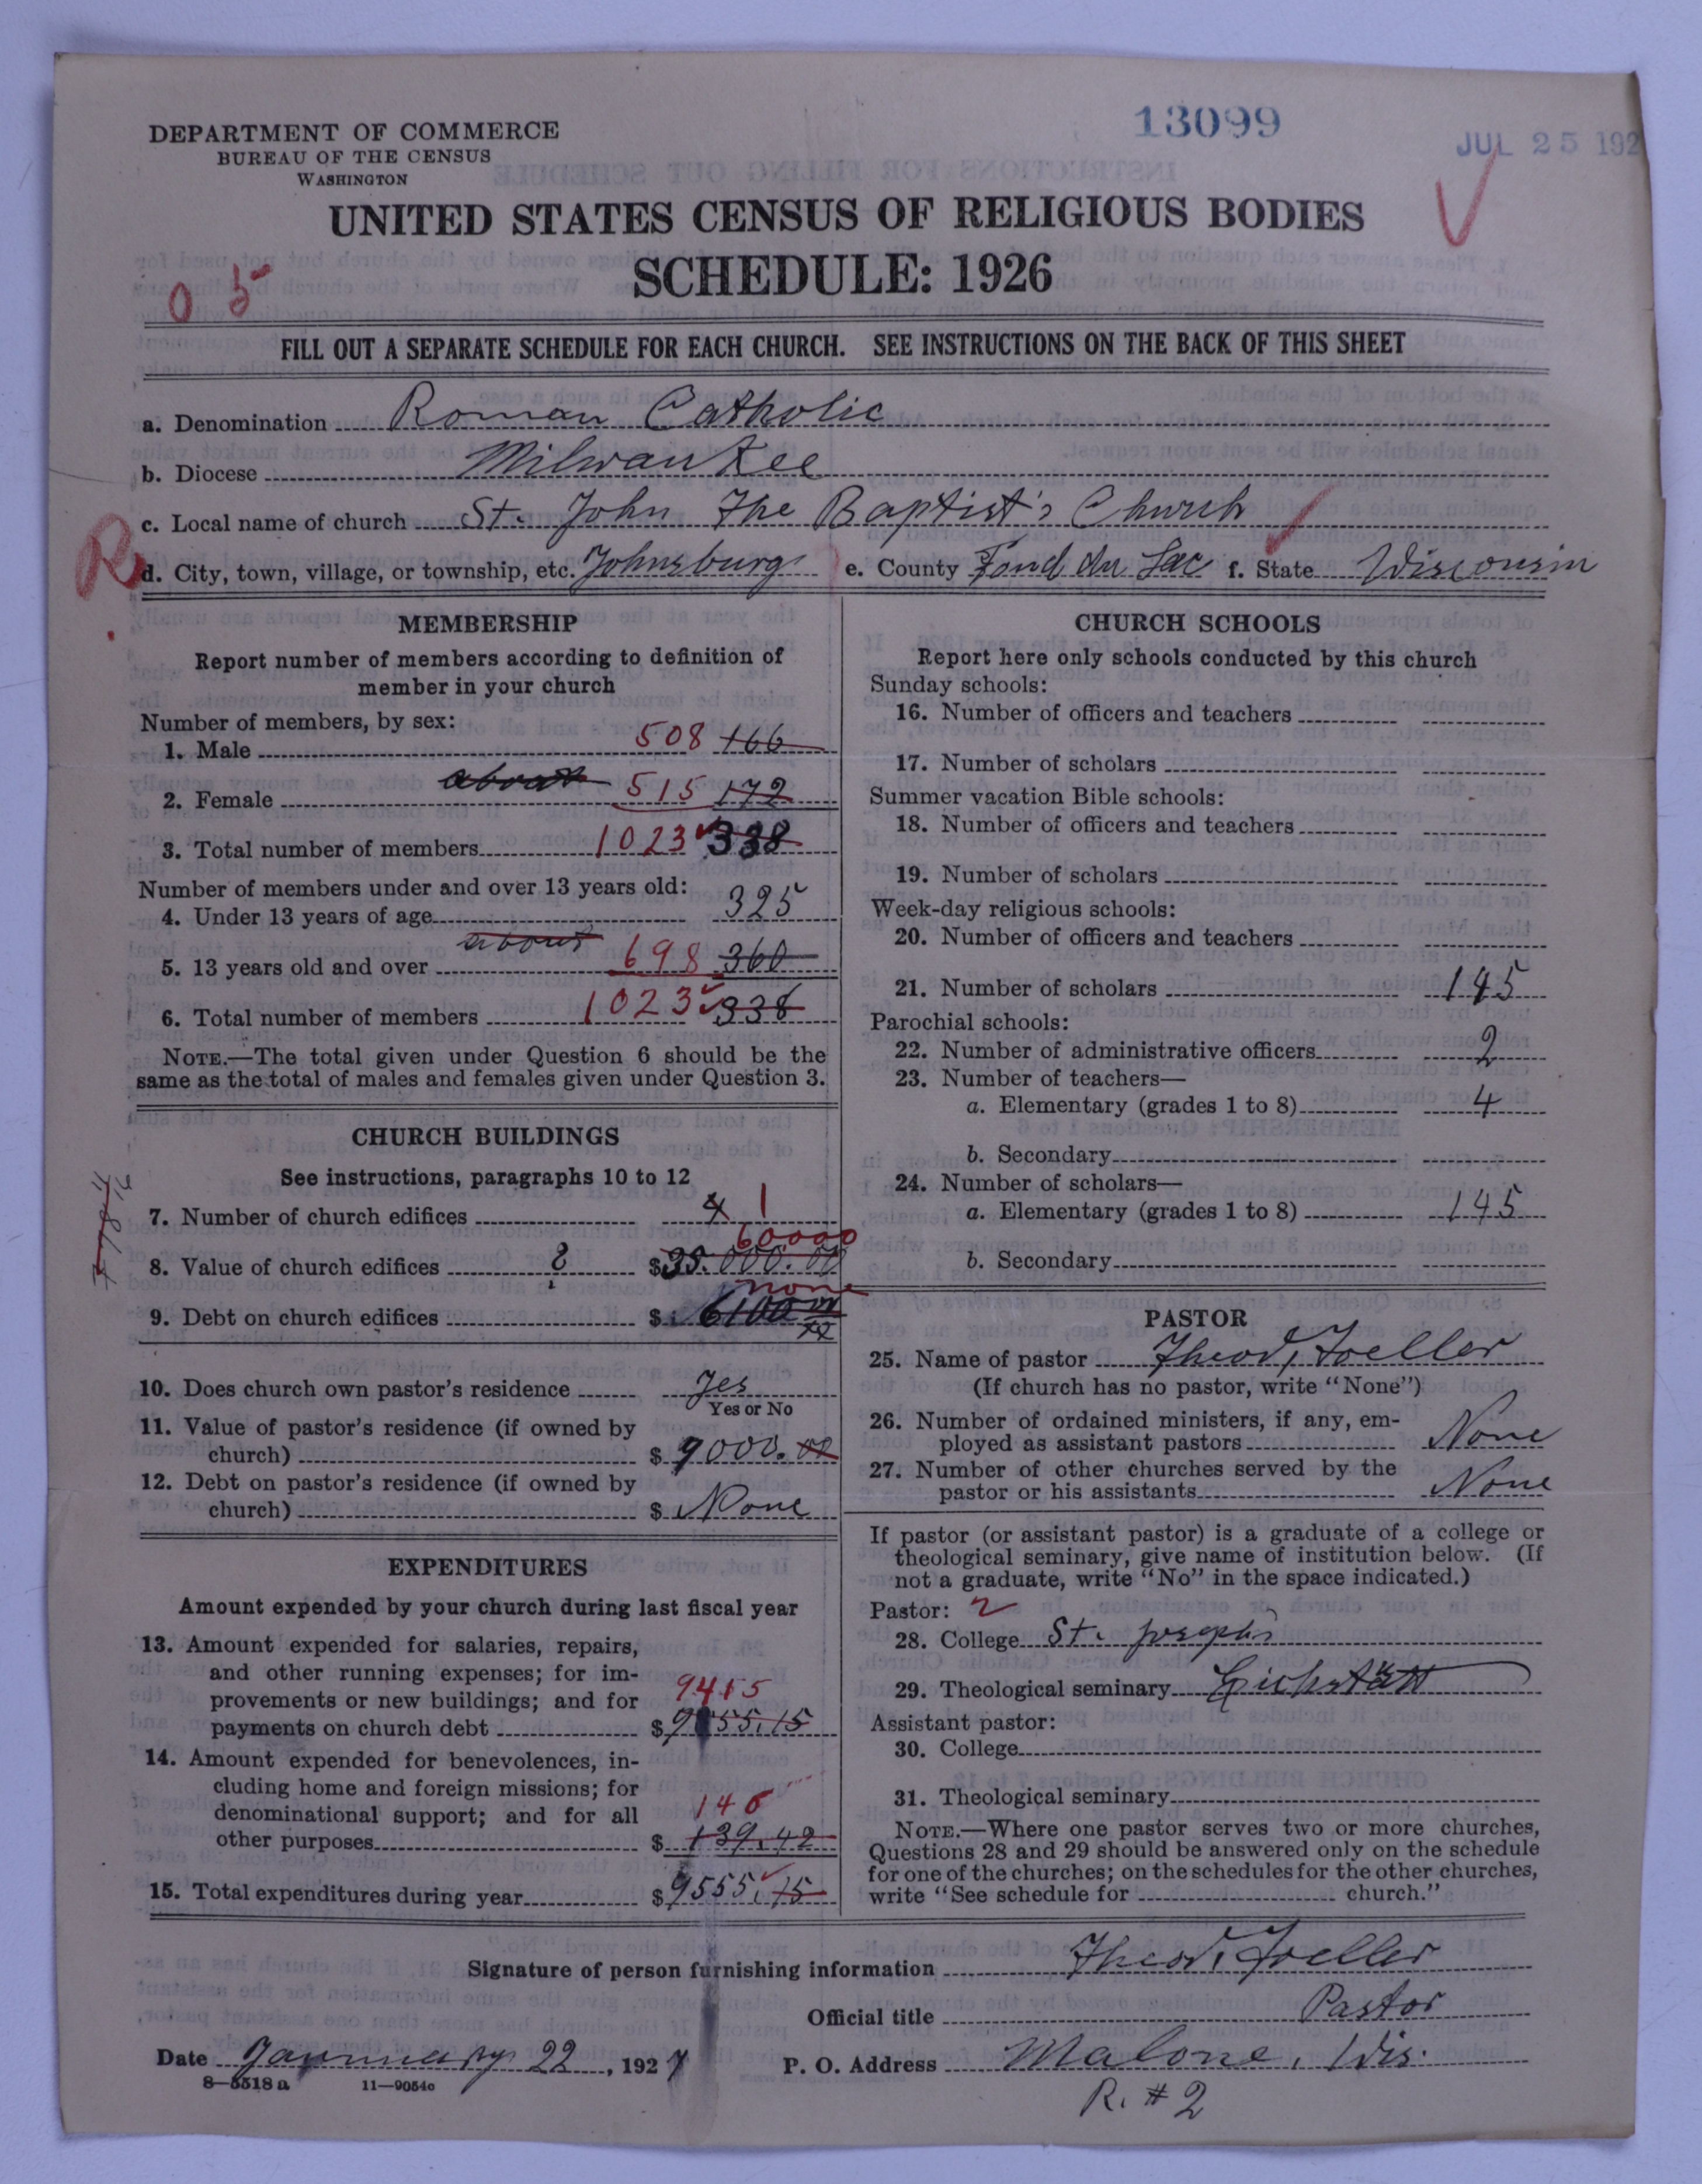 13099
JUL 25 192
DEPARTMENT OF COMMERCE
BUREAU OF THE CENSUS
WASHINGTON
UNITED STATES CENSUS OF RELIGIOUS BODIES
SCHEDULE: 1926
05
FILL OUT A SEPARATE SCHEDULE FOR EACH CHURCH. SEE INSTRUCTIONS ON THE BACK OF THIS SHEET
a. Denomination Roman Catholic
b. Diocese Milwaukee
c. Local name of church St. John The Baptist's Church
R
d. City, town, village, or township, etc. Johnsburg e. County Fond du Lac f. State Wisconsin
MEMBERSHIP
Report number of members according to definition of
member in your church
Number of members, by sex:
1. Male 508 166
2. Female about 515 172
3. Total number of members 1023 338
Number of members under and over 13 years old:
4. Under 13 years of age 325
5. 13 years old and over about 698 360
6. Total number of members 1023 338
NOTE.—The total given under Question 6 should be the
same as the total of males and females given under Question 3.
CHURCH BUILDINGS
See instructions, paragraphs 10 to 12
7. Number of church edifices 1
60000
8. Value of church edifices 8 $35.000.00
none
9. Debt on church edifices $ 6100
10. Does church own pastor's residence Yes
Yes or No
11. Value of pastor's residence (if owned by
church) $ 9000.00
12. Debt on pastor's residence (if owned by
church) $ None
EXPENDITURES
Amount expended by your church during last fiscal year
13. Amount expended for salaries, repairs,
and other running expenses; for im-
provements or new buildings; and for
9415
payments on church debt $ 55.15
14. Amount expended for benevolences, in-
cluding home and foreign missions; for
denominational support; and for all
140
other purposes $ 139.42
15. Total expenditures during year $9555.15
CHURCH SCHOOLS
Report here only schools conducted by this church
Sunday schools:
16. Number of officers and teachers
17. Number of scholars
Summer vacation Bible schools:
18. Number of officers and teachers
19. Number of scholars
Week-day religious schools:
20. Number of officers and teachers
21. Number of scholars 145
Parochial schools:
22. Number of administrative officers 2
23. Number of teachers—
a. Elementary (grades 1 to 8) 4
b. Secondary
24. Number of scholars—
a. Elementary (grades 1 to 8) 145
b. Secondary
PASTOR
25. Name of pastor Theod. Toeller
(If church has no pastor, write "None")
26. Number of ordained ministers, if any, em-
ployed as assistant pastors None
27. Number of other churches served by the
pastor or his assistants None
If pastor (or assistant pastor) is a graduate of a college or
theological seminary, give name of institution below. (If
not a graduate, write "No" in the space indicated.)
Pastor: 2
28. College St. Joseph's
29. Theological seminary Eichstätt
Assistant pastor:
30. College
31. Theological seminary
NOTE.—Where one pastor serves two or more churches,
Questions 28 and 29 should be answered only on the schedule
for one of the churches; on the schedules for the other churches,
write "See schedule for church."
Signature of person furnishing information Theod. Toeller
Official title Pastor
Date January 22, 1927 P. O. Address Malone, Wis.
8—5518a 11—9054c
R. #2